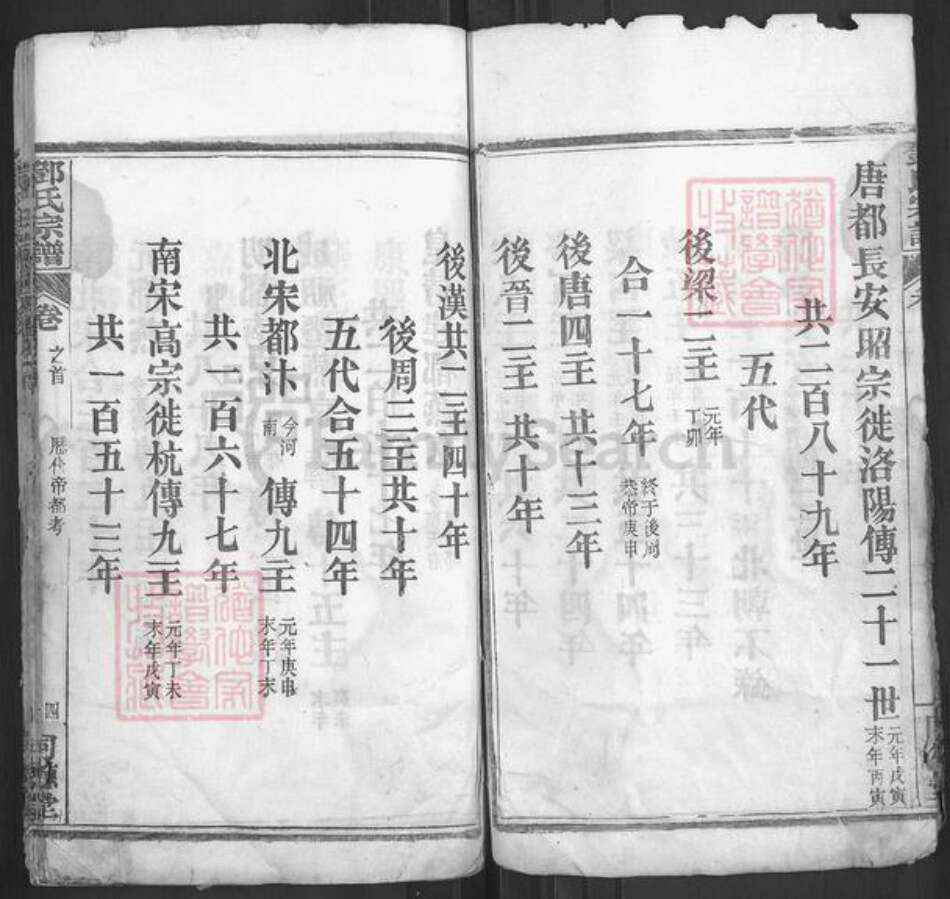 唐都長安昭宗徙洛陽傳二十一世 元年戊寅 末年丙寅
共二百八十九年
五代
後梁二主 元年 丁卯
合一十七年 終于後周 恭帝庚申
後唐四主 共十三年
後晉二主 共十年
後漢共二主四十年
後周三主共十年
五代合五十四年
北宋都汴 今河南 傳九主 元年庚申 末年丁未
共一百六十七年
南宋高宗徙杭傳九主 元年丁未 末年戊寅
共一百五十三年
鄧氏宗譜 卷 之首 歷代帝都考 四
FamilySearch